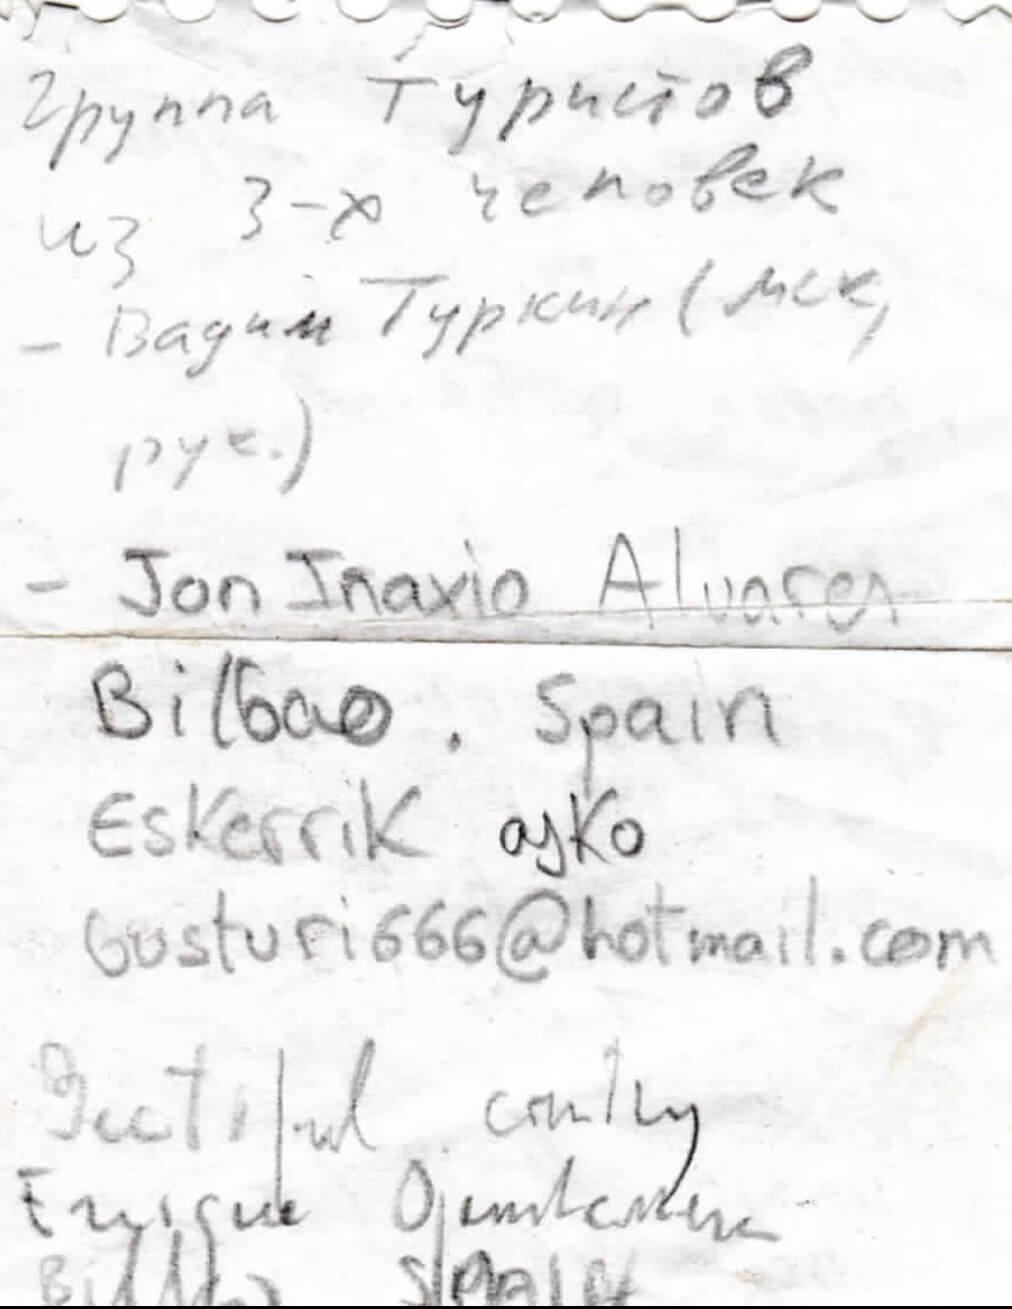 Группа Туристов
из 3-х человек
- Вадим Туркин (мск,
рук.)
- Jon Inaxio Alvarez
Bilbao. Spain
Eskerrik asko
Gusturi666@hotmail.com
Enrique
Bilbao SPAIN